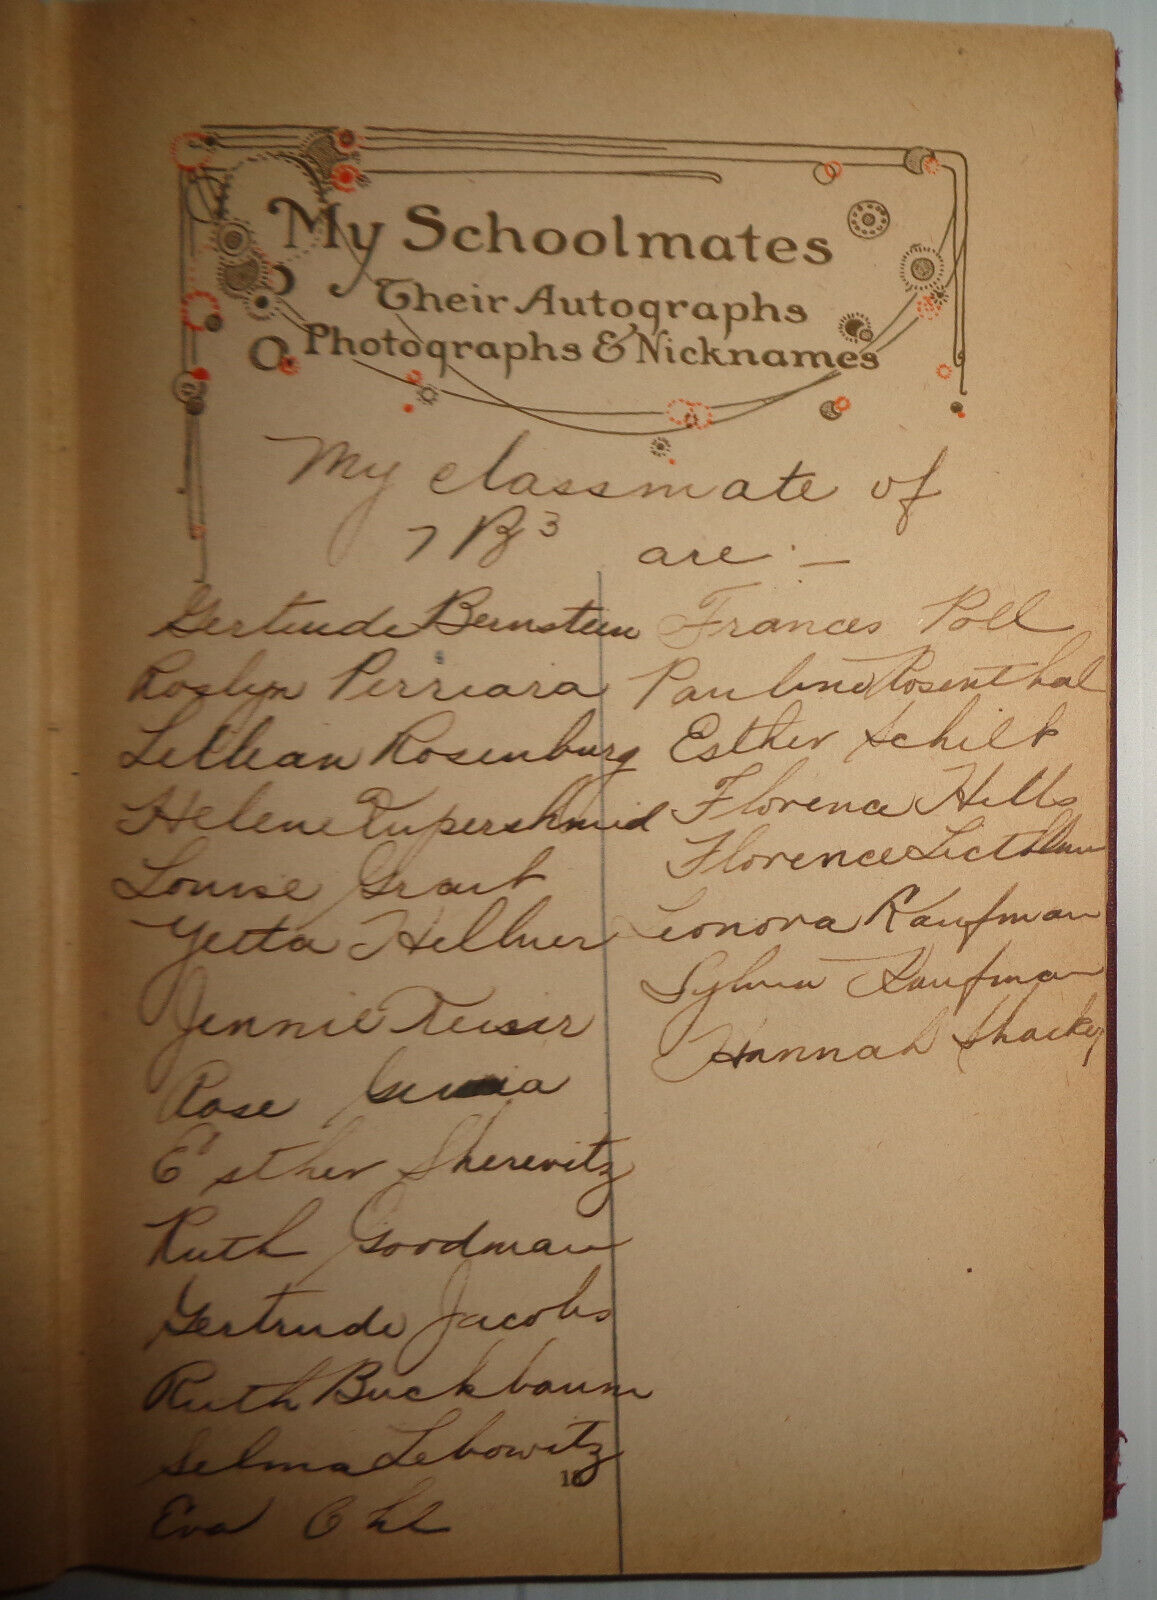 My Schoolmates
Their Autographs
Photographs & Nicknames
My classmate of
7B3 are:—
Gertrude Bernstein
Roslyn Perriara
Lillian Rosenburg
Helene Rupershmid
Louise Grant
Yetta Hellner
Jennie Reiser
Rose
Esther Sherevitz
Ruth Goodman
Gertrude Jacobs
Ruth Buckbaum
Selma Lebowitz
Eva Ohl
Frances Poll
Pauline Rosenthal
Esther Schilk
Florence Hills
Florence
Leonora Kaufman
Sylvia Kaufman
Hannah Sharkey